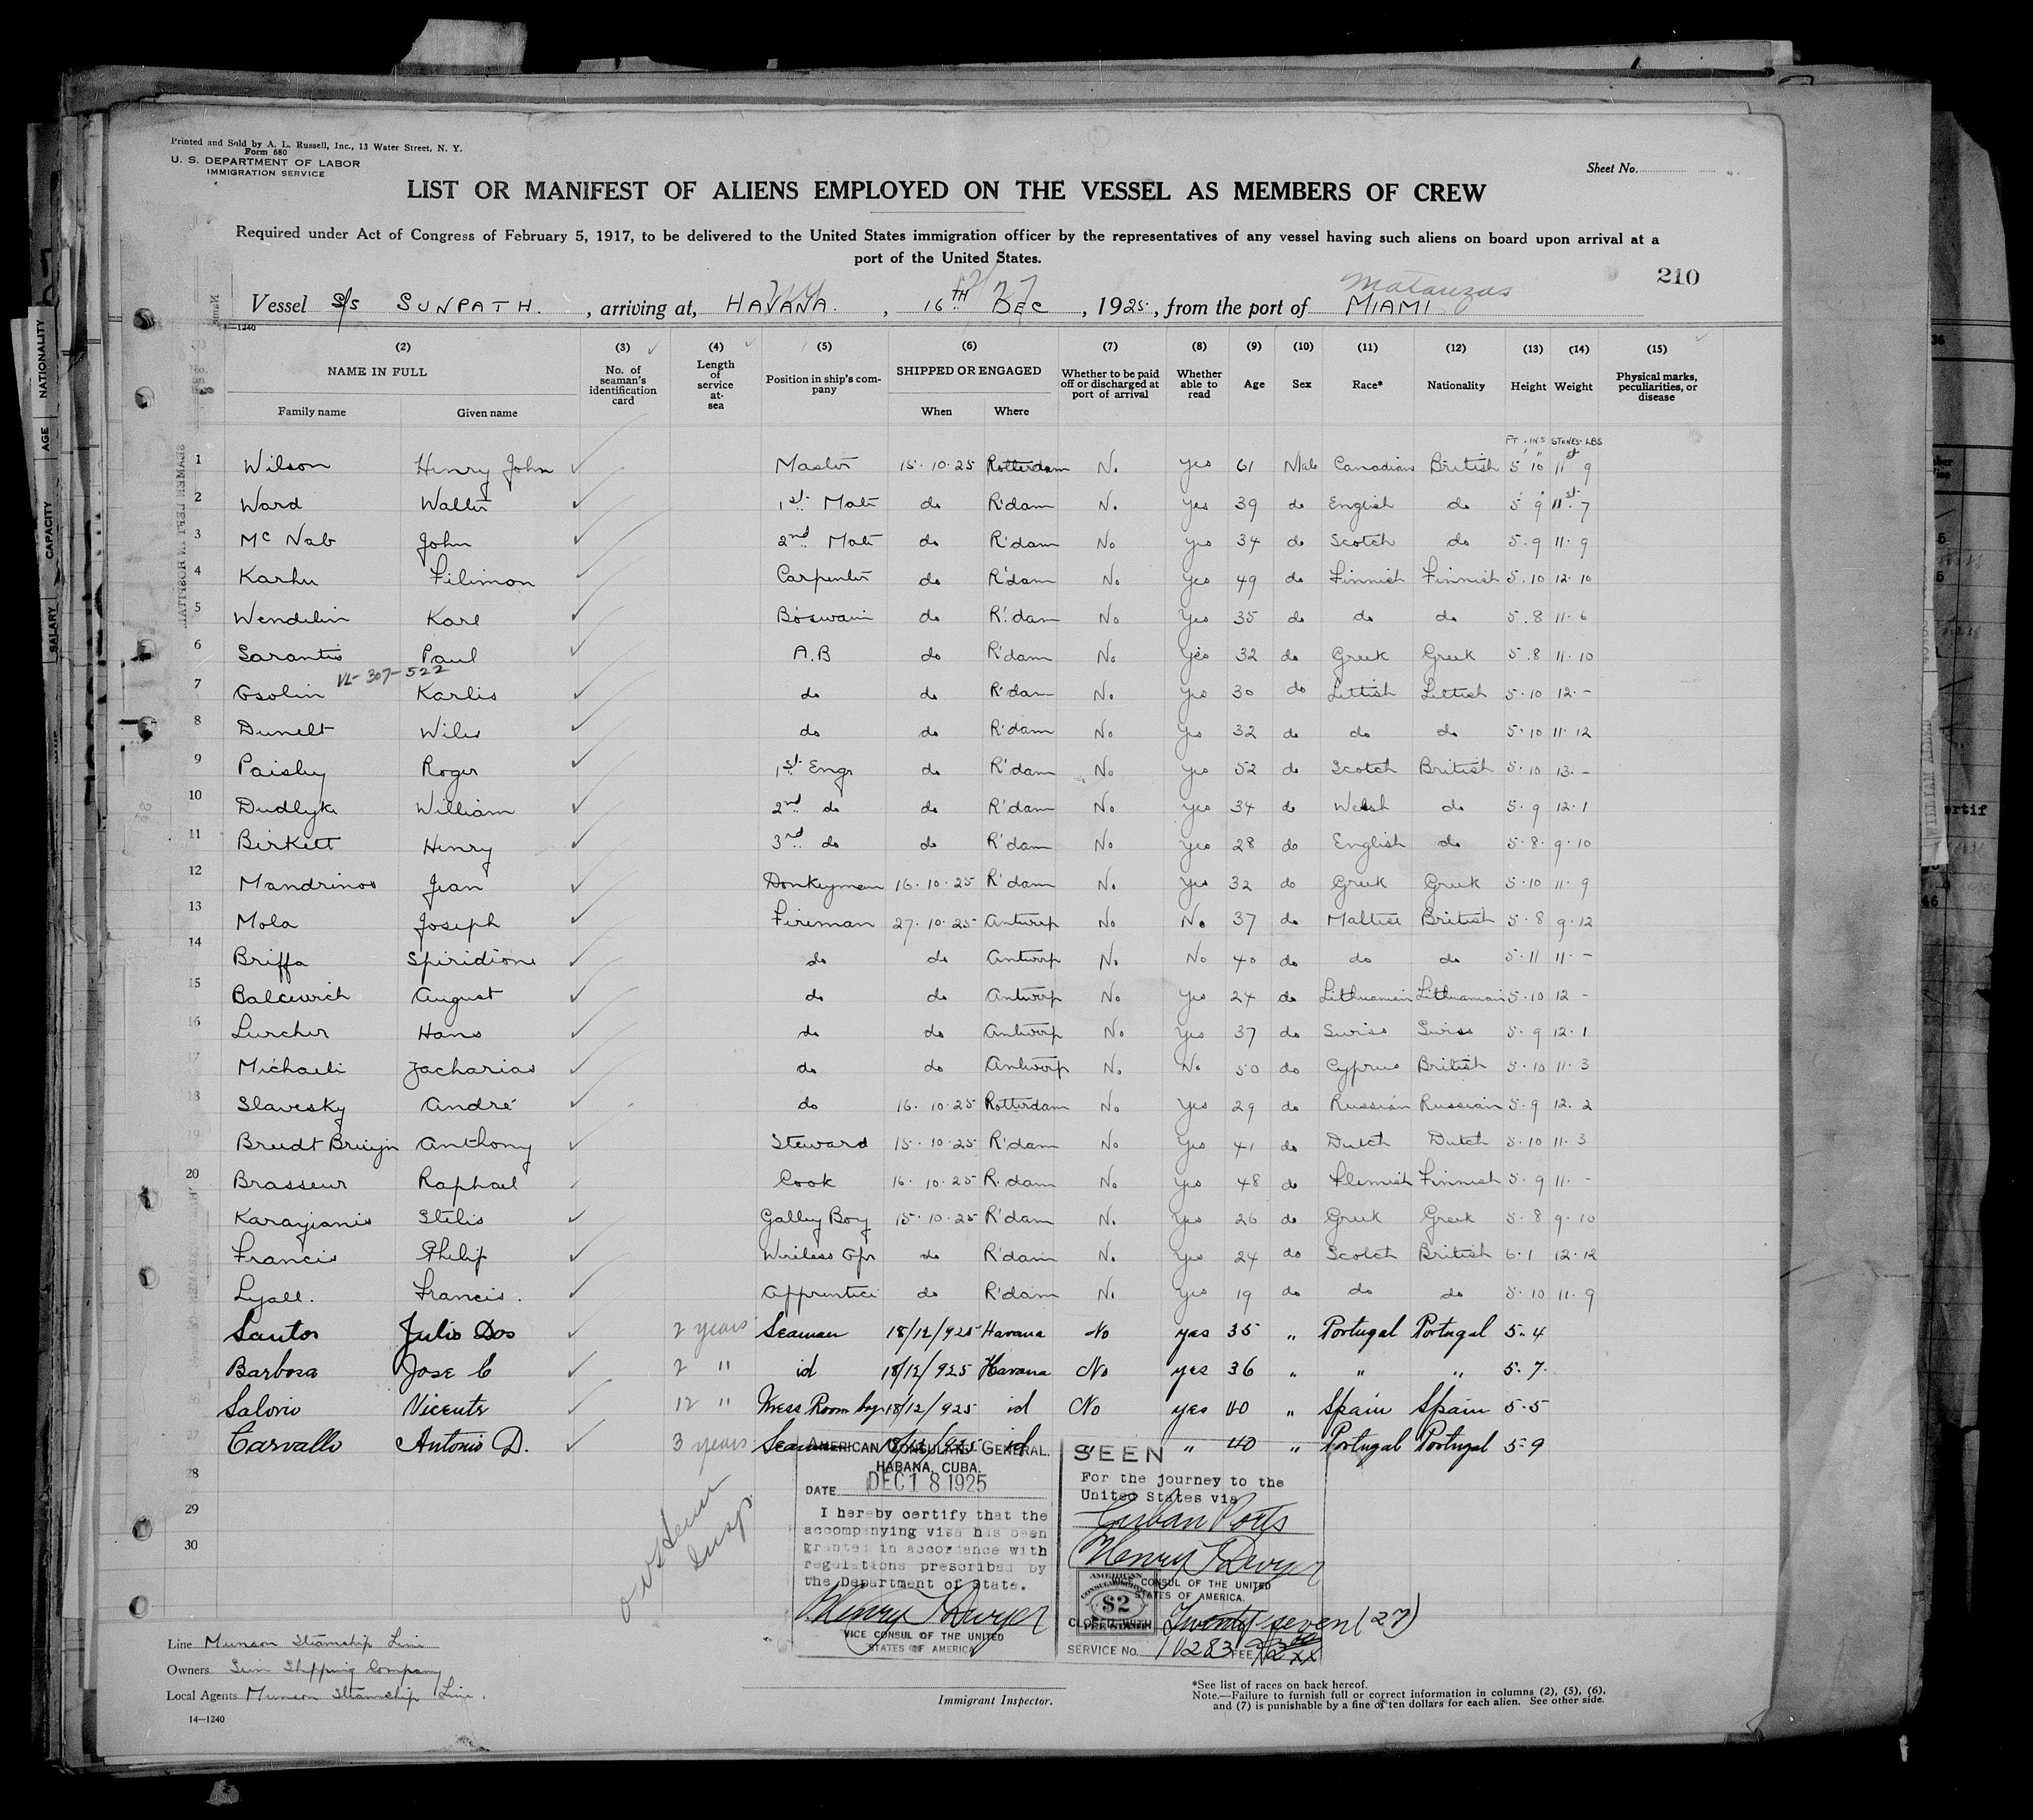 Printed and Sold by A. L. Russell, Inc., 13 Water Street, N. Y.
Form 680
U. S. DEPARTMENT OF LABOR
IMMIGRATION SERVICE
Sheet No.
LIST OR MANIFEST OF ALIENS EMPLOYED ON THE VESSEL AS MEMBERS OF CREW
Required under Act of Congress of February 5, 1917, to be delivered to the United States immigration officer by the representatives of any vessel having such aliens on board upon arrival at a
port of the United States.
210
Matanzas
Vessel S/S SUNPATH. , arriving at, HAVANA. , 16TH DEC , 1925, from the port of MIAMI
—1240
(2) (3) (4) (5) (6) (7) (8) (9) (10) (11) (12) (13) (14) (15)
NAME IN FULL No. of seaman's identification card Length of service at sea Position in ship's company SHIPPED OR ENGAGED Whether to be paid off or discharged at port of arrival Whether able to read Age Sex Race* Nationality Height Weight Physical marks, peculiarities, or disease
Family name Given name When Where
FT. INS STONES LBS
1 Wilson Henry John Master 15.10.25 Rotterdam No Yes 61 Male Canadian British 5' 10" 11st 9
2 Ward Walter 1st. Mate do R'dam No Yes 39 do English do 5' 9" 11st. 7
3 Mc Nab John 2nd Mate do R'dam No Yes 34 do Scotch do 5.9 11.9
4 Karhu Filimon Carpenter do R'dam No Yes 49 do Finnish Finnish 5.10 12.10
5 Wendelin Karl Bo'swain do R'dam No Yes 35 do do do 5.8 11.6
6 Sarantis Paul A.B do R'dam No Yes 32 do Greek Greek 5.8 11.10
VL-307-522
7 Osolin Karlis do do R'dam No Yes 30 do Lettish Lettish 5.10 12.-
8 Dunelt Wiles do do R'dam No Yes 32 do do do 5.10 11.12
9 Paisley Roger 1st. Engr do R'dam No Yes 52 do Scotch British 5.10 13.-
10 Dudlyke William 2nd do do R'dam No Yes 34 do Welsh do 5.9 12.1
11 Birkett Henry 3rd do do R'dam No Yes 28 do English do 5.8. 9.10
12 Mandrinos Jean Donkeyman 16.10.25 R'dam No Yes 32 do Greek Greek 5.10 11.9
13 Mola Joseph Fireman 27.10.25 Antwerp No No 37 do Maltese British 5.8 9.12
14 Briffa Spiridione do do Antwerp No No 40 do do do 5.11 11.-
15 Balcewich August do do Antwerp No Yes 24 do Lithuanian Lithuanian 5.10 12 -
16 Lurcher Hans do do Antwerp No Yes 37 do Swiss Swiss 5.9 12.1
17 Michaeli Zacharias do do Antwerp No No 50 do Cyprus British 5.10 11.3
18 Slavesky André do 16.10.25 Rotterdam No Yes 29 do Russian Russian 5.9 12.2
19 Bruijn Anthony Steward 15.10.25 R'dam No Yes 41 do Dutch Dutch 5.10 11.3
20 Brasseur Raphael Cook 16.10.25 R.dam No Yes 48 do Flemish Finnish 5.9 11.-
Karayianis Stelis Galley Boy 15.10.25 R'dam No Yes 26 do Greek Greek 5.8 9.10
Francis Philip Wireless Opr do R'dam No Yes 24 do Scotch British 6.1 12.12
Lyall. Francis. Apprentice do R'dam No Yes 19 do do do 5.10 11.9
Santos Julio Dos 2 years Seaman 18/12/925 Havana No yes 35 " Portugal Portugal 5-4
Barbosa Jose C 2 " id 18/12/925 Havana No yes 36 " " " 5-7.
Salorio Vicente 12 " Mess Room boy 18/12/925 id No yes 40 " Spain Spain 5-5
27 Carvallo Antonio D. 3 years Seaman 18/12/925 id " " 40 " Portugal Portugal 5-9
28
29
30
AMERICAN CONSULATE GENERAL.
HABANA, CUBA.
DATE DEC 18 1925
I hereby certify that the
accompanying visa has been
granted in accordance with
regulations prescribed by
the Department of State.
Henry T Dwyer
VICE CONSUL OF THE UNITED
STATES OF AMERICA
SEEN
For the journey to the
United States via
Cuban Ports
Henry T Dwyer
VICE CONSUL OF THE UNITED
STATES OF AMERICA.
AMERICAN
$2
FEE STAMP
Twenty seven (27)
SERVICE No. 10283 FEE
Insp.
Line Munson Steamship Line
Owners Sun Shipping Company
Local Agents Munson Steamship Line.
14—1240
Immigrant Inspector.
*See list of races on back hereof.
Note.—Failure to furnish full or correct information in columns (2), (5), (6),
and (7) is punishable by a fine of ten dollars for each alien. See other side.
NATIONALITY
AGE
CAPACITY
SALARY